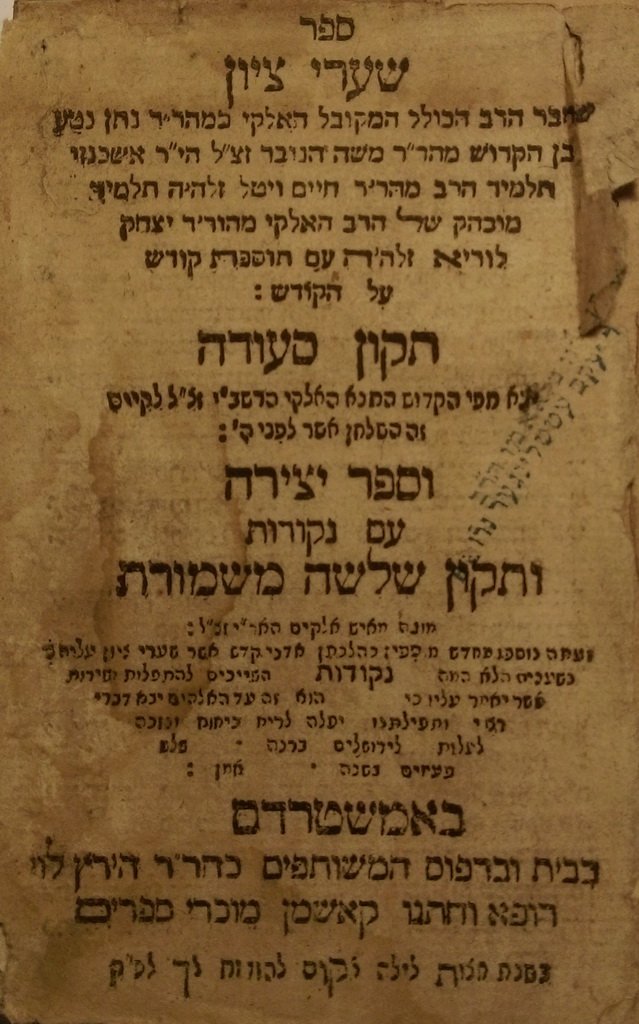 ספר
שערי ציון
שחבר הרב הכולל המקובל האלקי כמהר״ר נתן נטע
בן הקדוש מהר״ר משה הנובר זצ״ל הי״ר אשכנזי
תלמיד הרב מהר״ר חיים ויטל זלה״ה תלמיד
מובהק של הרב האלקי מהור״ר יצחק
לוריא זלה״ה עם תוספת קודש
על הקודש :
תקון סעודה
יצא מפי הקדוש התנא האלקי הרשב״י ז״ל לקיים
זה השלחן אשר לפני ה׳ :
וספר יצירה
עם נקורות
ותקון שלשה משמורת
מאיש אלקים האר״י זצ״ל :
ועתה נוסף מחדש אשר שערי ציון
נקודות הצריכים להתפלות
אשר יאמר עליו כי הוא זה עד האלהים יבא דברי
ותפילתנו יעלה לריח ניחוח ונזכה
לעלות לירושלים ברנה
פעמים בשנה אמן :
באמשטרדם
בבית ובדפוס המשותפים כהר״ר הירץ לוי
רופא וחתנו קאשמן מוכרי ספרים
בשנת חצות לילה אקום להודות לך לפ״ק